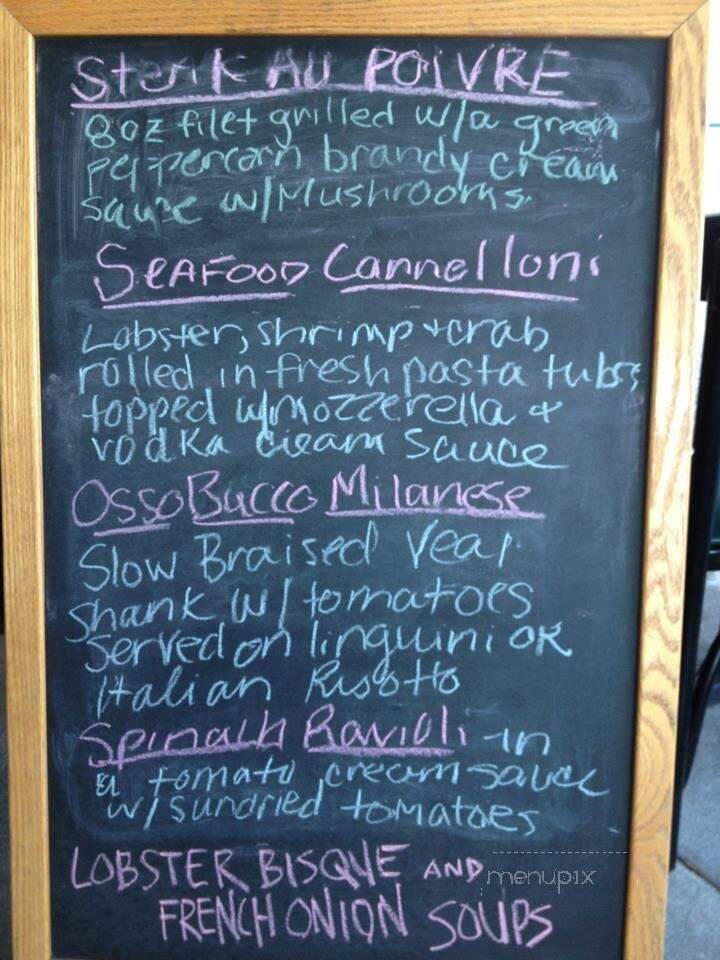 Steak AU POIVRE
8oz filet grilled w/a green
peppercorn brandy cream
sauce w/Mushrooms
SEAFOOD Cannelloni
Lobster, shrimp + crab
rolled in fresh pasta tubes
topped w/mozzerella +
vodka cream sauce
Osso Bucco Milanese
Slow Braised Veal
shank w/ tomatoes
served on linguini OR
Italian Risotto
Spinach Ravioli in
a tomato cream sauce
w/sundried tomatoes
LOBSTER BISQUE AND
menupix
FRENCH ONION SOUPS